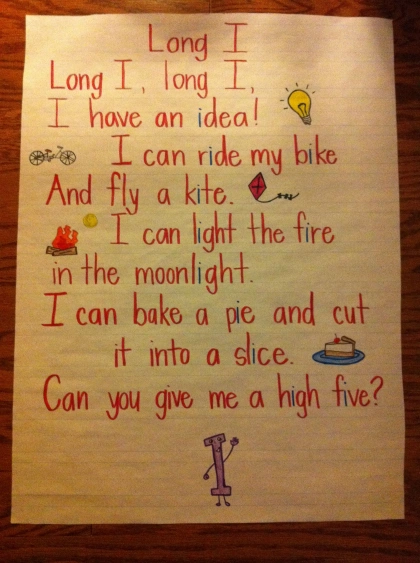 Long I
Long I, long I,
I have an idea!
I can ride my bike
And fly a kite.
I can light the fire
in the moonlight.
I can bake a pie and cut
it into a slice.
Can you give me a high five?
I